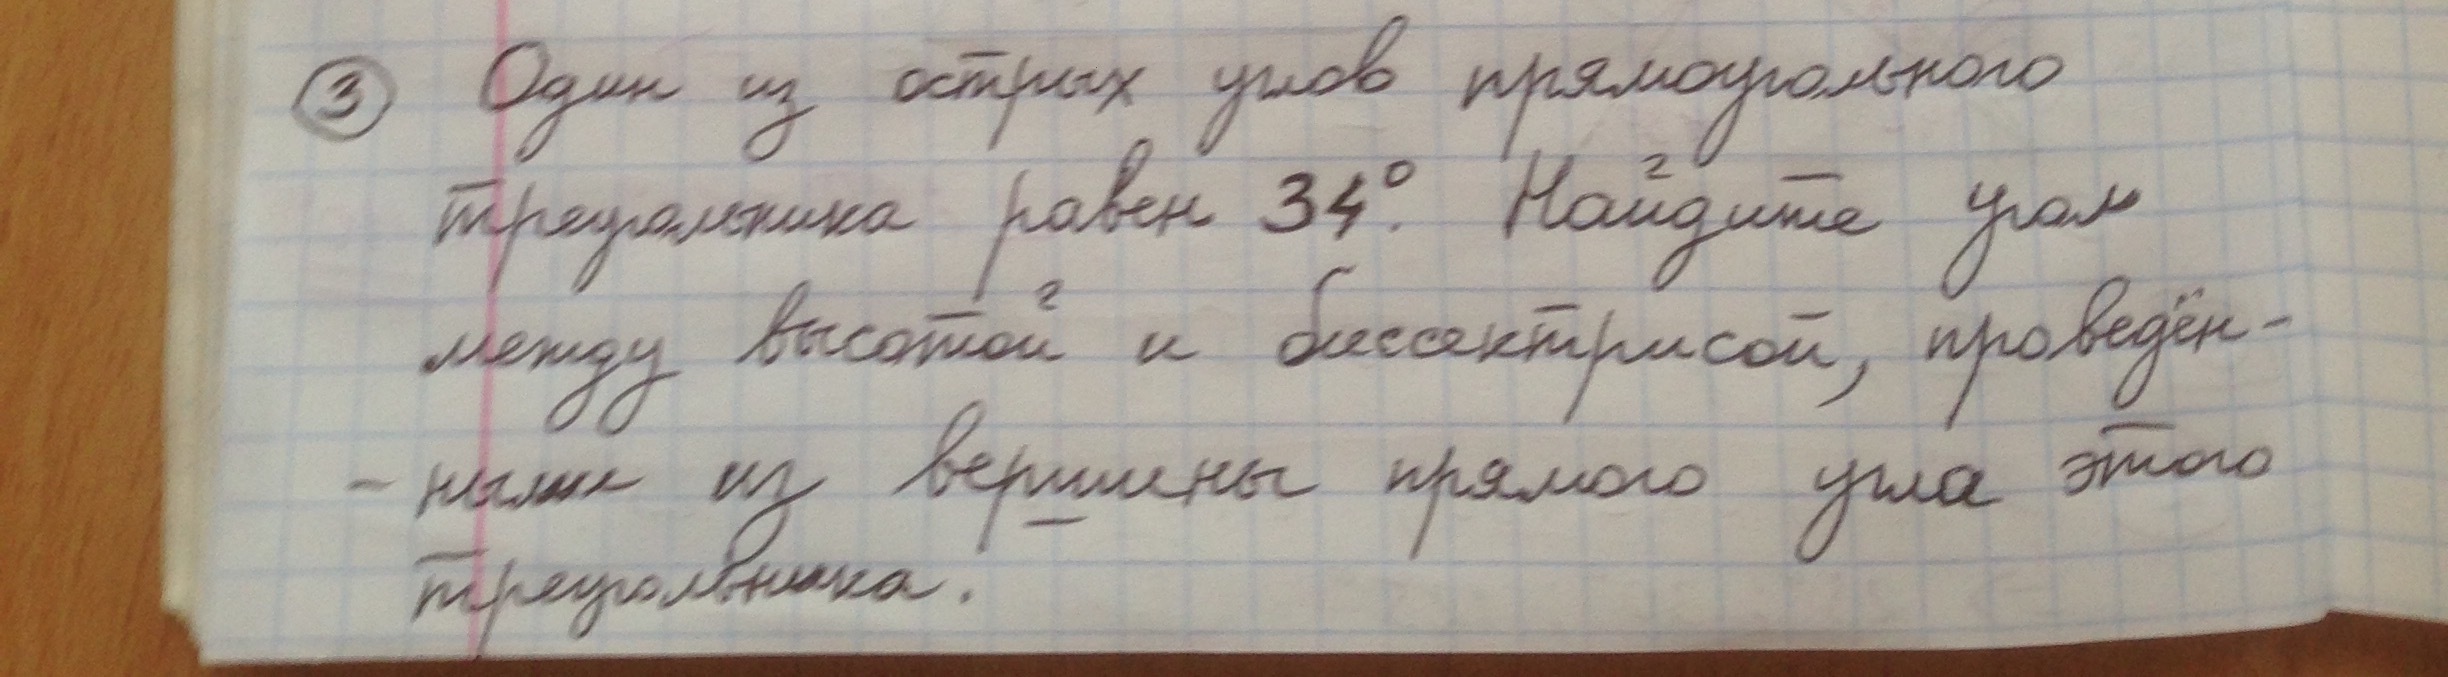 3 Один из острых углов прямоугольного
треугольника равен 34°. Найдите угол
между высотой и биссектрисой, проведён-
- ными из вершины прямого угла этого
треугольника.